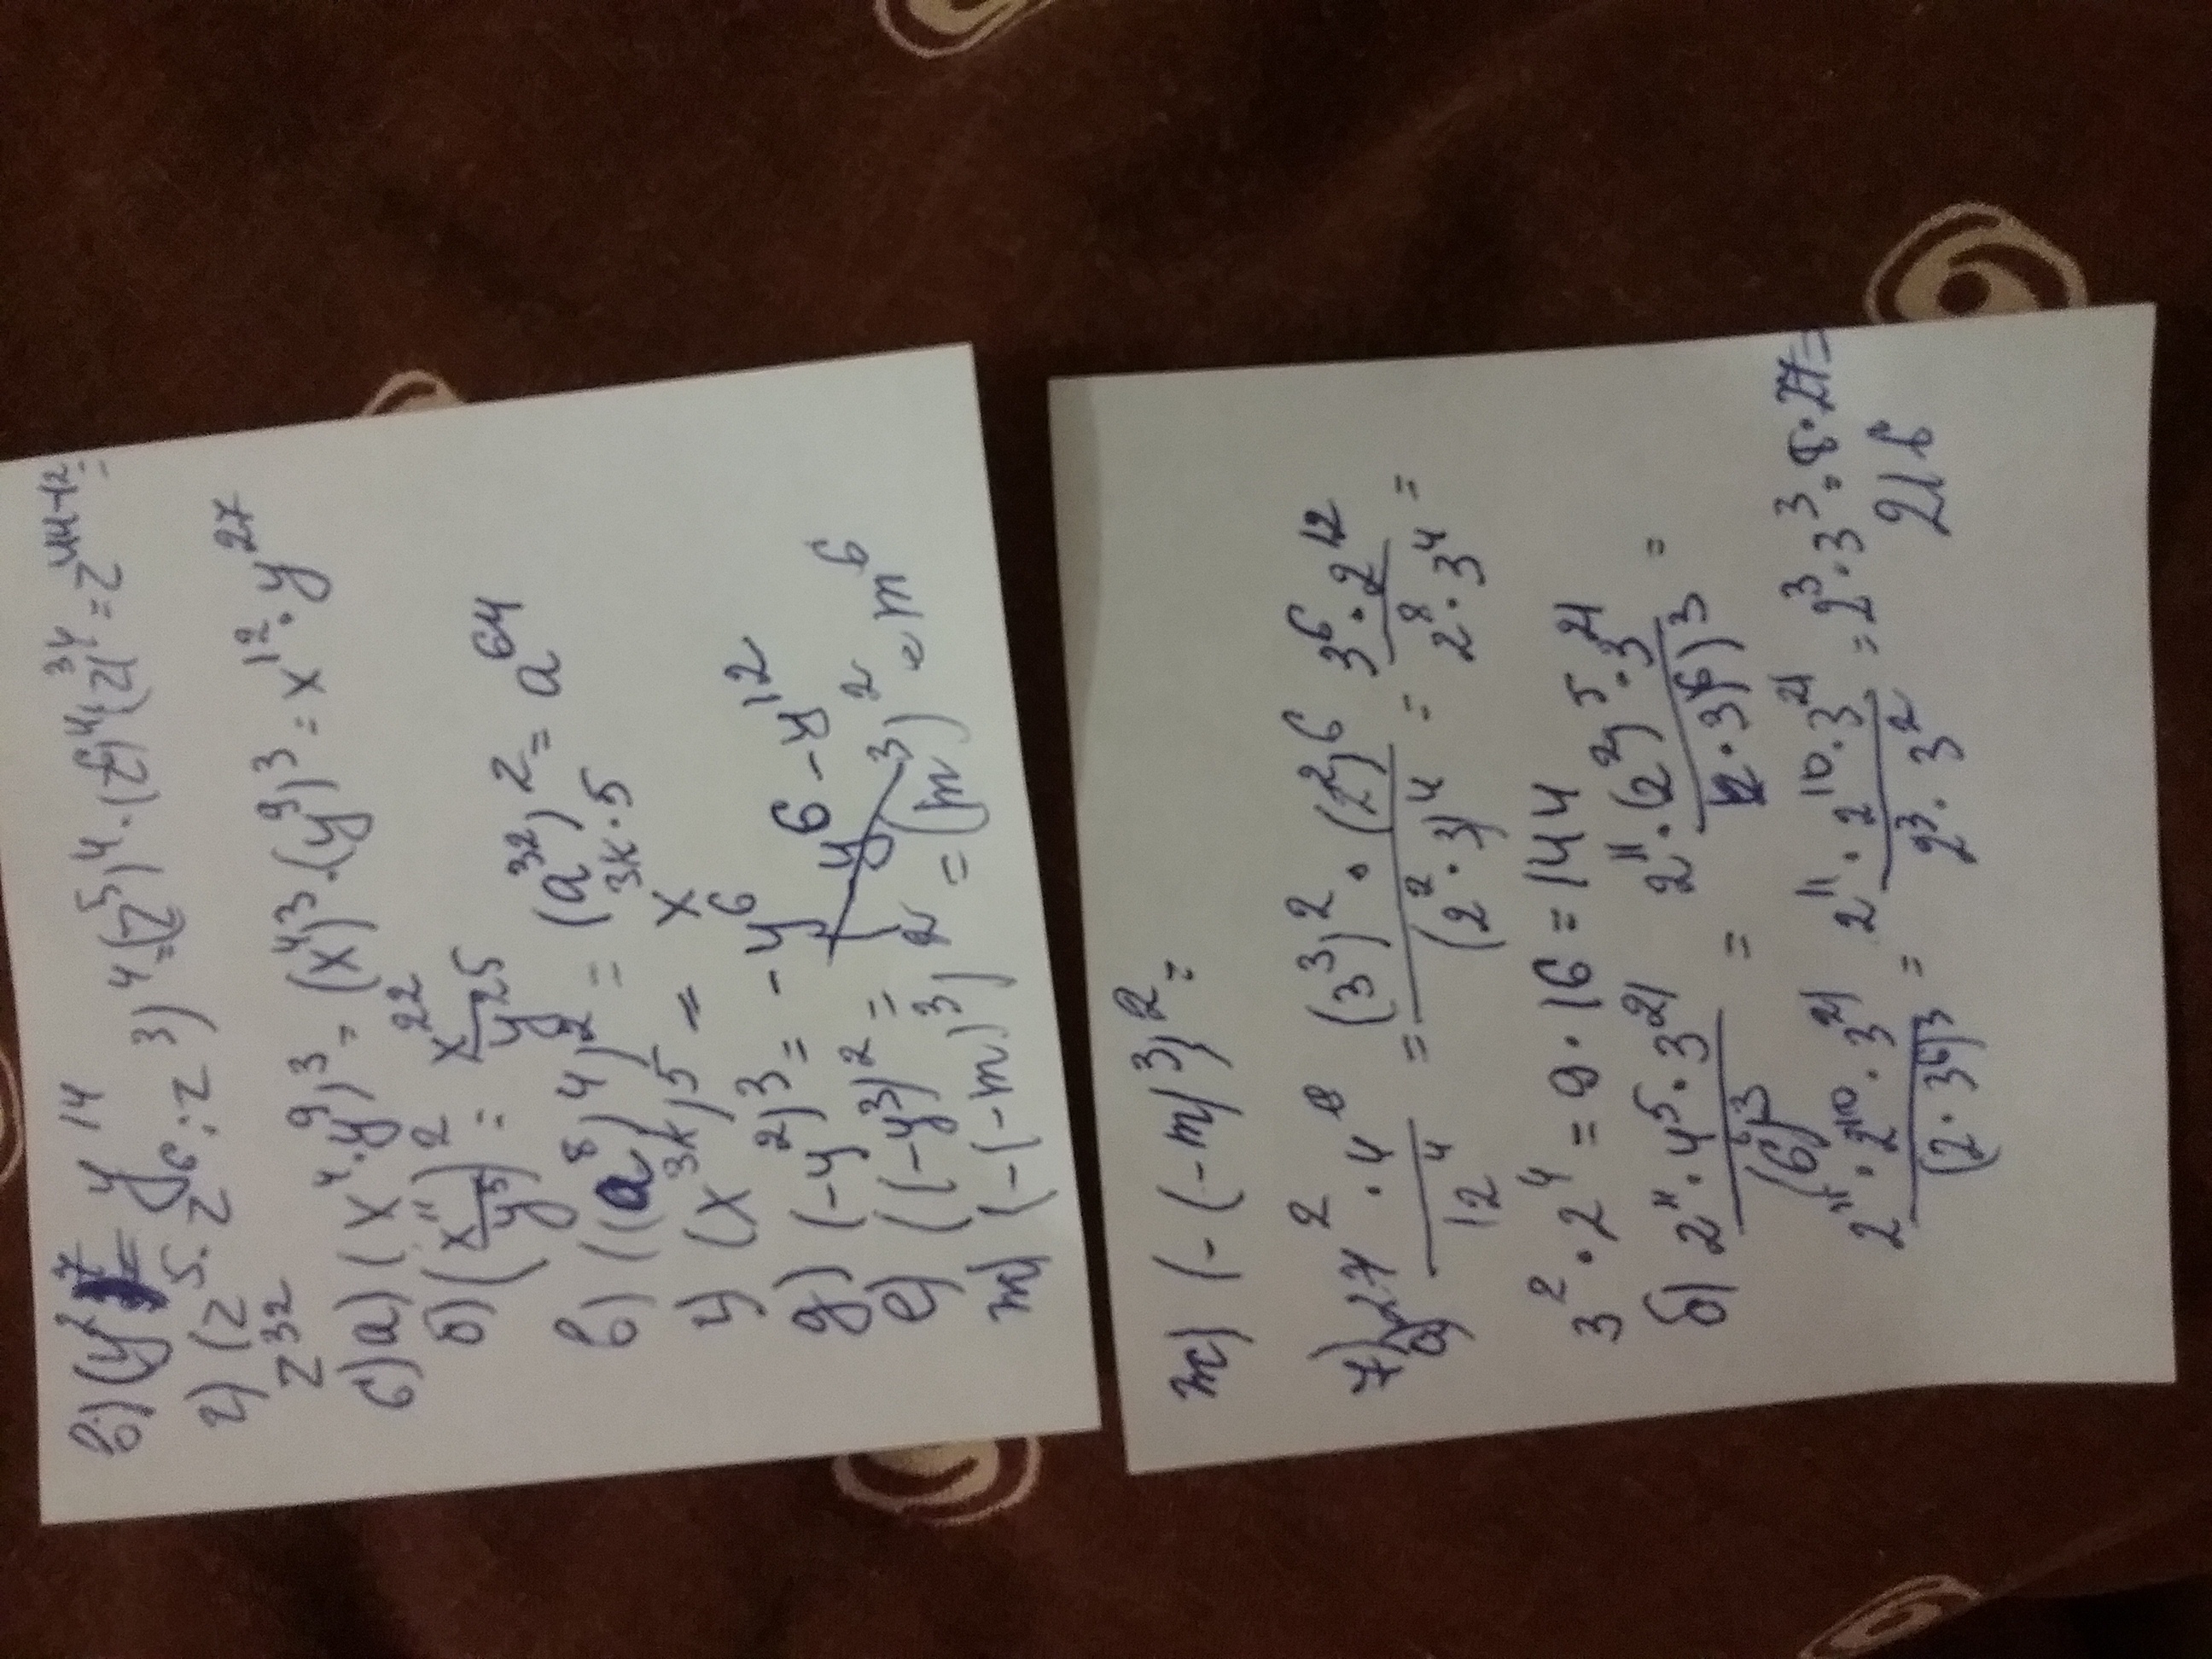 в) (y²)⁷ = y¹⁴
г) (z⁵ · z⁶ : z³)⁴ = (z⁵)⁴ · (z⁶)⁴ : (z³)⁴ = z⁴⁴⁻¹² =
z³²
6) а) (x⁴ · y⁹)³ = (x⁴)³ · (y⁹)³ = x¹² · y²⁷
б) (x¹¹/y⁵)² = x²²/y²⁵
в) ((a⁸)⁴)² = (a³²)² = a⁶⁴
г) (x³ᵏ)⁵ = x³ᵏ·⁵
д) (-y²)³ = -y⁶
е) ((-y³)² = y⁶ - y¹²
ж) (-(-m)³)² = (m³)² = m⁶
ж) (-(-m)³)² =
7) а) 27² · 4⁶/12⁴ = (3³)² · (2²)⁶/(2² · 3)⁴ = 3⁶ · 2¹²/2⁸ · 3⁴ =
3² · 2⁴ = 9 · 16 = 144
б) 2¹¹ · 4⁵ · 3²¹/(6⁶)³ = 2¹¹ · (2²)⁵ · 3²¹/(2 · 3⁶)³ =
2¹¹ · 2¹⁰ · 3²¹/(2 · 3⁶)³ = 2¹¹ · 2¹⁰ · 3²¹/2³ · 3² = 2³ · 3³ = 8 · 27 =
216